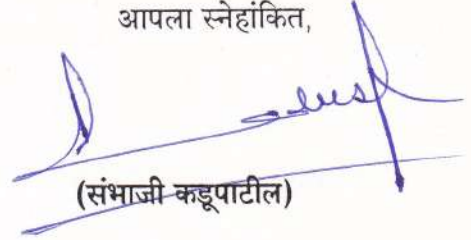 आपला स्नेहांकित,
(संभाजी कडूपाटील)